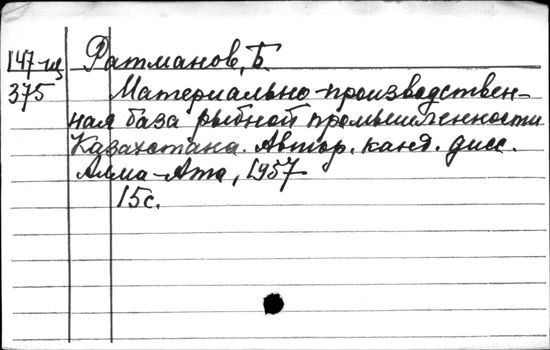 147-щ
375
Ратманов, Б.
Материально-производствен-
ная база рыбной промышленности
Казахстана. Автор. канд. дисс.
Алма-Ата, 1957
15с.